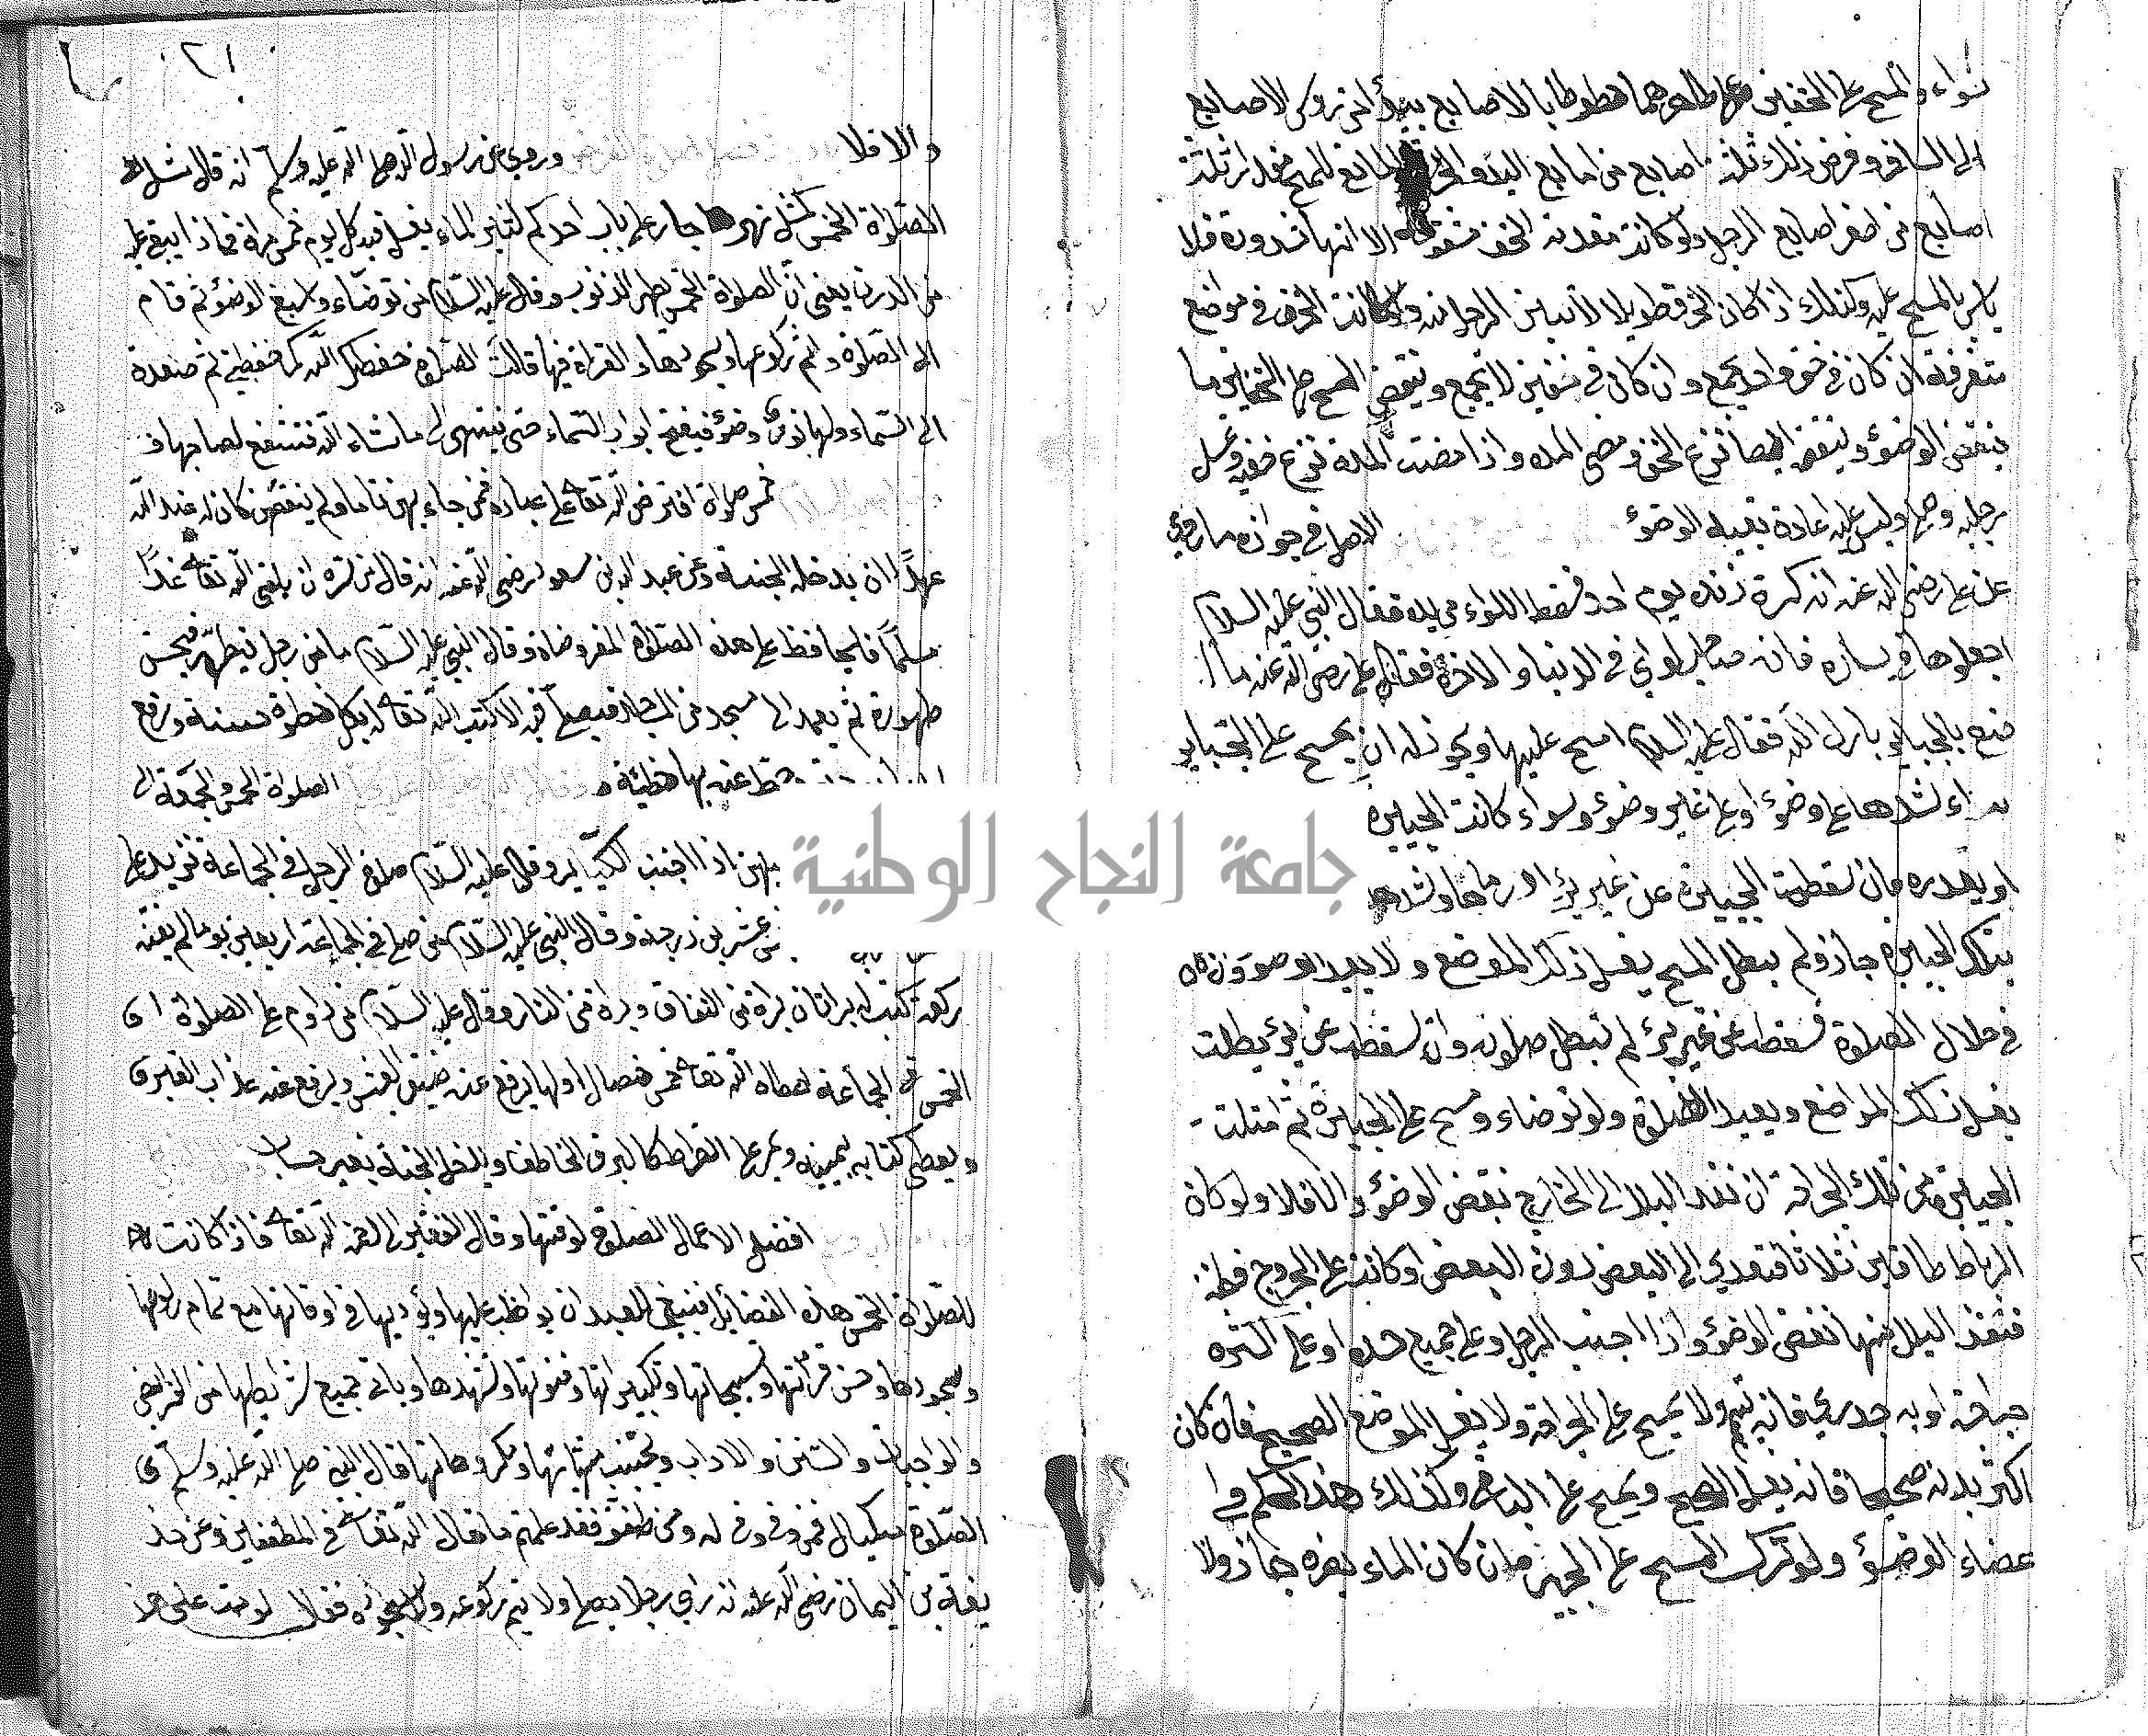 سواء والمسح على الخفين على ظاهرهما خطوطا بالاصابع يبتدأ من رؤس الاصابع
الى الساق وفرض ذلك ثلثة اصابع من اصابع اليد والخرق المانع للمسح مقدار ثلثة
اصابع من اصغر اصابع الرجل ولو كانت مقدمة الخف مشقوقة الا انها مشدودة فلا
باس بالمسح عليه وكذلك اذا كان الخرق طويلا لا تبين الرجل منه ولو كانت الخرق في مواضع
متفرقة ان كان في خف واحد يجمع وان كان في خفين لا يجمع وينقض المسح على الخفين ما
ينقض الوضوء وينقضه ايضا نزع الخف ومضى المدة واذا مضت المدة نزع خفيه وغسل
رجليه وصلى وليس عليه اعادة بقية الوضوء الاصل في جوازه ما روي
عن على رضى الله عنه انه كسرة زنده يوم احد فسقط اللواء من يده فقال النبي عليه السلام
اجعلوها في يساره فانه صاحب لوائي في الدنيا والاخرة فقال على رضى الله عنه ما
نصنع بالجباير يا رسول الله فقال عليه السلام امسح عليها ويجوز له ان يمسح على الجباير
سواء شدها على وضوء او على غير وضوء وسواء كانت الجبيرة
او بقدره فان سقطت الجبيرة عن غير برء وشدها
بتلك الجبيرة جاز ولم يبطل المسح يغسل ذلك الموضع ولا يعيد الوضوء وان
في خلال الصلوة فسقطت عن غير برء لم تبطل صلوته وان سقطت عن برء بطلت
يغسل ذلك المواضع ويعيد الصلوة ولو توضاء ومسح على الجبيرة ثم ابتلت
الجبيرة من تلك الجراحة ان نفد البلل الى الخارج نقض الوضوء والا فلا ولو كان
الرباط طاقين فلا تعدي الى البعض دون البعض او كانت على الجروح قطنة
فنفذ البلل منها نقض الوضوء واذا اجنب الرجل وعلى جميع جسده او على اكثره
جراحة او به جدري فانه تيمم ولا يمسح على الجراحة ولا يغسل الموضع الصحيح فان كان
اكثر بدنه صحيحا فانه يغسل الصحيح ويمسح على الباقي وكذلك هذا الحكم في ا
عضاء الوضوء ولو ترك المسح على الجبيرة فان كان الماء يضره جاز والا
٢١
والا فلا وروي عن رسول الله صلى الله عليه وسلم انه قال مثل
الصلوة الخمس كمثل نهر جار على باب احدكم كثير الماء يغسل فيه كل يوم خمس مرات فماذا يبقى عليه
من الدرن يعنى ان الصلوة الخمس تطهر الذنوب وقال عليه السلام من توضاء واسبغ الوضوء ثم قام
الى الصلوة واتم ركوعها وسجودها والقراة فيها قالت الصلوة حفظك الله كما حفظتني ثم صعدة
الى السماء ولها نور وضوء فيفتح ابواب السماء حتى تنتهى الى ما شاء الله فتشفع لصاحبها و
خمس صلوة افترض الله تعالى على عباده فمن جاء بهن تاما ولم ينقص كان له عند الله
عهدا ان يدخله الجنة وعن عبد الله بن مسعود رضى الله عنه انه قال من سره ان يلقى الله تعالى غدا
مسلما فليحافظ على هذه الصلوة المفروضة وقال النبي عليه السلام ما من رجل يتطهر فيحسن
طهورة ثم يعمد الى مسجد من المساجد فيصلى فيه الا كتب الله تعالى له بكل خطوة حسنة ورفع
حط عنه بها خطيئة و الصلوة الخمس والجمعة الى
بهن اذا اجتنب الكبائر وقال عليه السلام صلوة الرجل في الجماعة تزيد على
عشرين درجة وقال النبي عليه السلام من صلى في الجماعة اربعين يوما لم يفته
ركعة كتب له براتان براة من النفاق وبراة من النار وقال عليه السلام من داوم على الصلوة
الخمس في الجماعة اعطاه الله تعالى خمس خصال اولها يرفع عنه ضيق العيش ويرفع عنه عذاب القبر و
ويعطى كتابه بيمينه ويمر على الصراط كالبرق الخاطف ويدخل الجنة بغير حساب
افضل الاعمال الصلوة لوقتها وقال الفقير الى رحمة الله تعالى فاذا كانت
للصلوة الخمس هذه الفضائل فينبغي للعبد ان يواظب عليها ويؤديها في اوقاتها مع تمام ركوعها
وسجودها وحسن قرأتها وتسبيحاتها وتكبيراتها وقنوتها وتشهدها وياتي جميع شرايطها من الفرايض
والواجبات والسنن والاداب ويجتنب منهياتها ومكروهاتها قال النبي صلى الله عليه وسلم
الصلوة مكيال فمن وفى وفى له ومن طفف فقد علمتم ما قال الله تعالى في المطففين وعن حذ
يفة بن اليمان رضى الله عنه انه رأى رجلا يصلى ولا يتم ركوعه ولا سجوده فقال لو مت على هذا
جامعة النجاح الوطنية